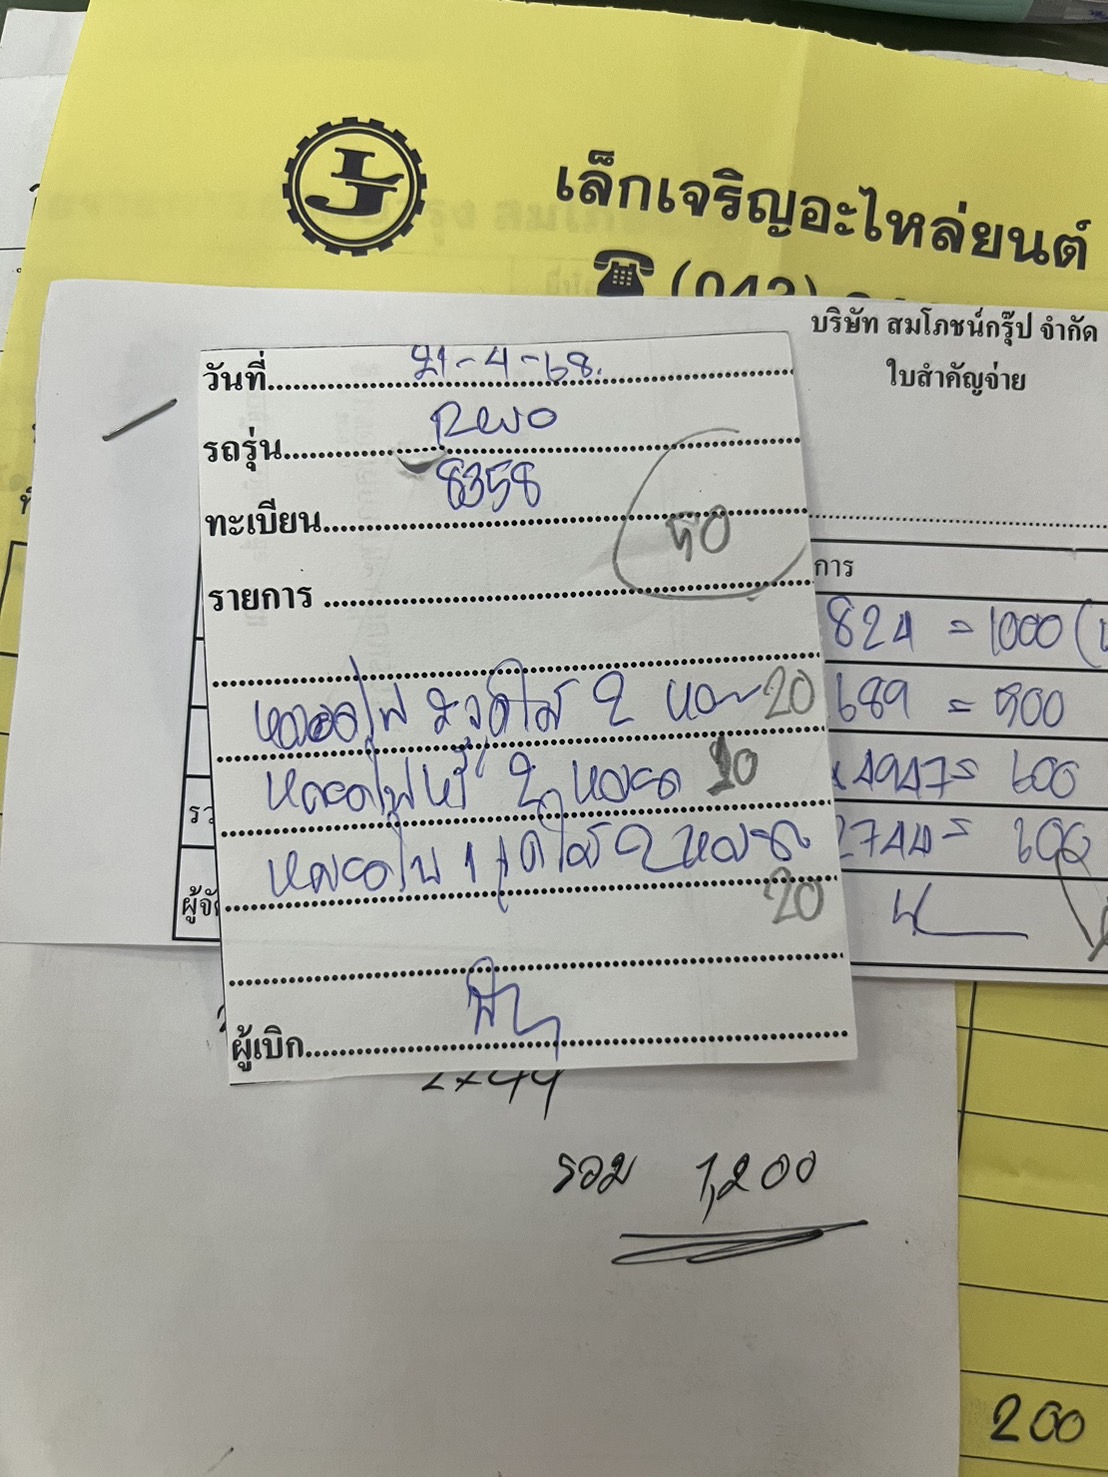 เล็กเจริญอะไหล่ยนต์
บริษัท สมโภชน์กรุ๊ป จำกัด
ใบสำคัญจ่าย
วันที่ 21-4-68.
รถรุ่น Revo
ทะเบียน 8358
50
รายการ
หลอดไฟ 2 จุดใส้ 2 หลอด 20
หลอดไฟหรี่ 2 หลอด 10
หลอดไฟ 1 จุดใส้ 2 หลอด
20
ผู้เบิก
การ
824 = 1000
689 = 500
4947 = 600
2744 =
รว
ผู้จัด
2x44
รวม 1,200
200